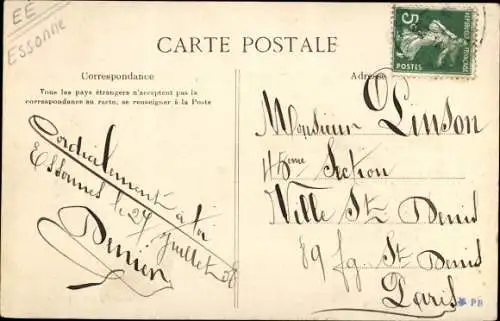 EE
Essonne
CARTE POSTALE
Correspondance
Tous les pays étrangers n'acceptent pas la
correspondance au recto, se renseigner à la Poste
Cordialement à toi
Essonnes le 24 Juillet 08
Adresse
5c
POSTES
Monsieur Pinson
45eme Section
Ville St Denis
89 fg. St Denis
Paris
PB